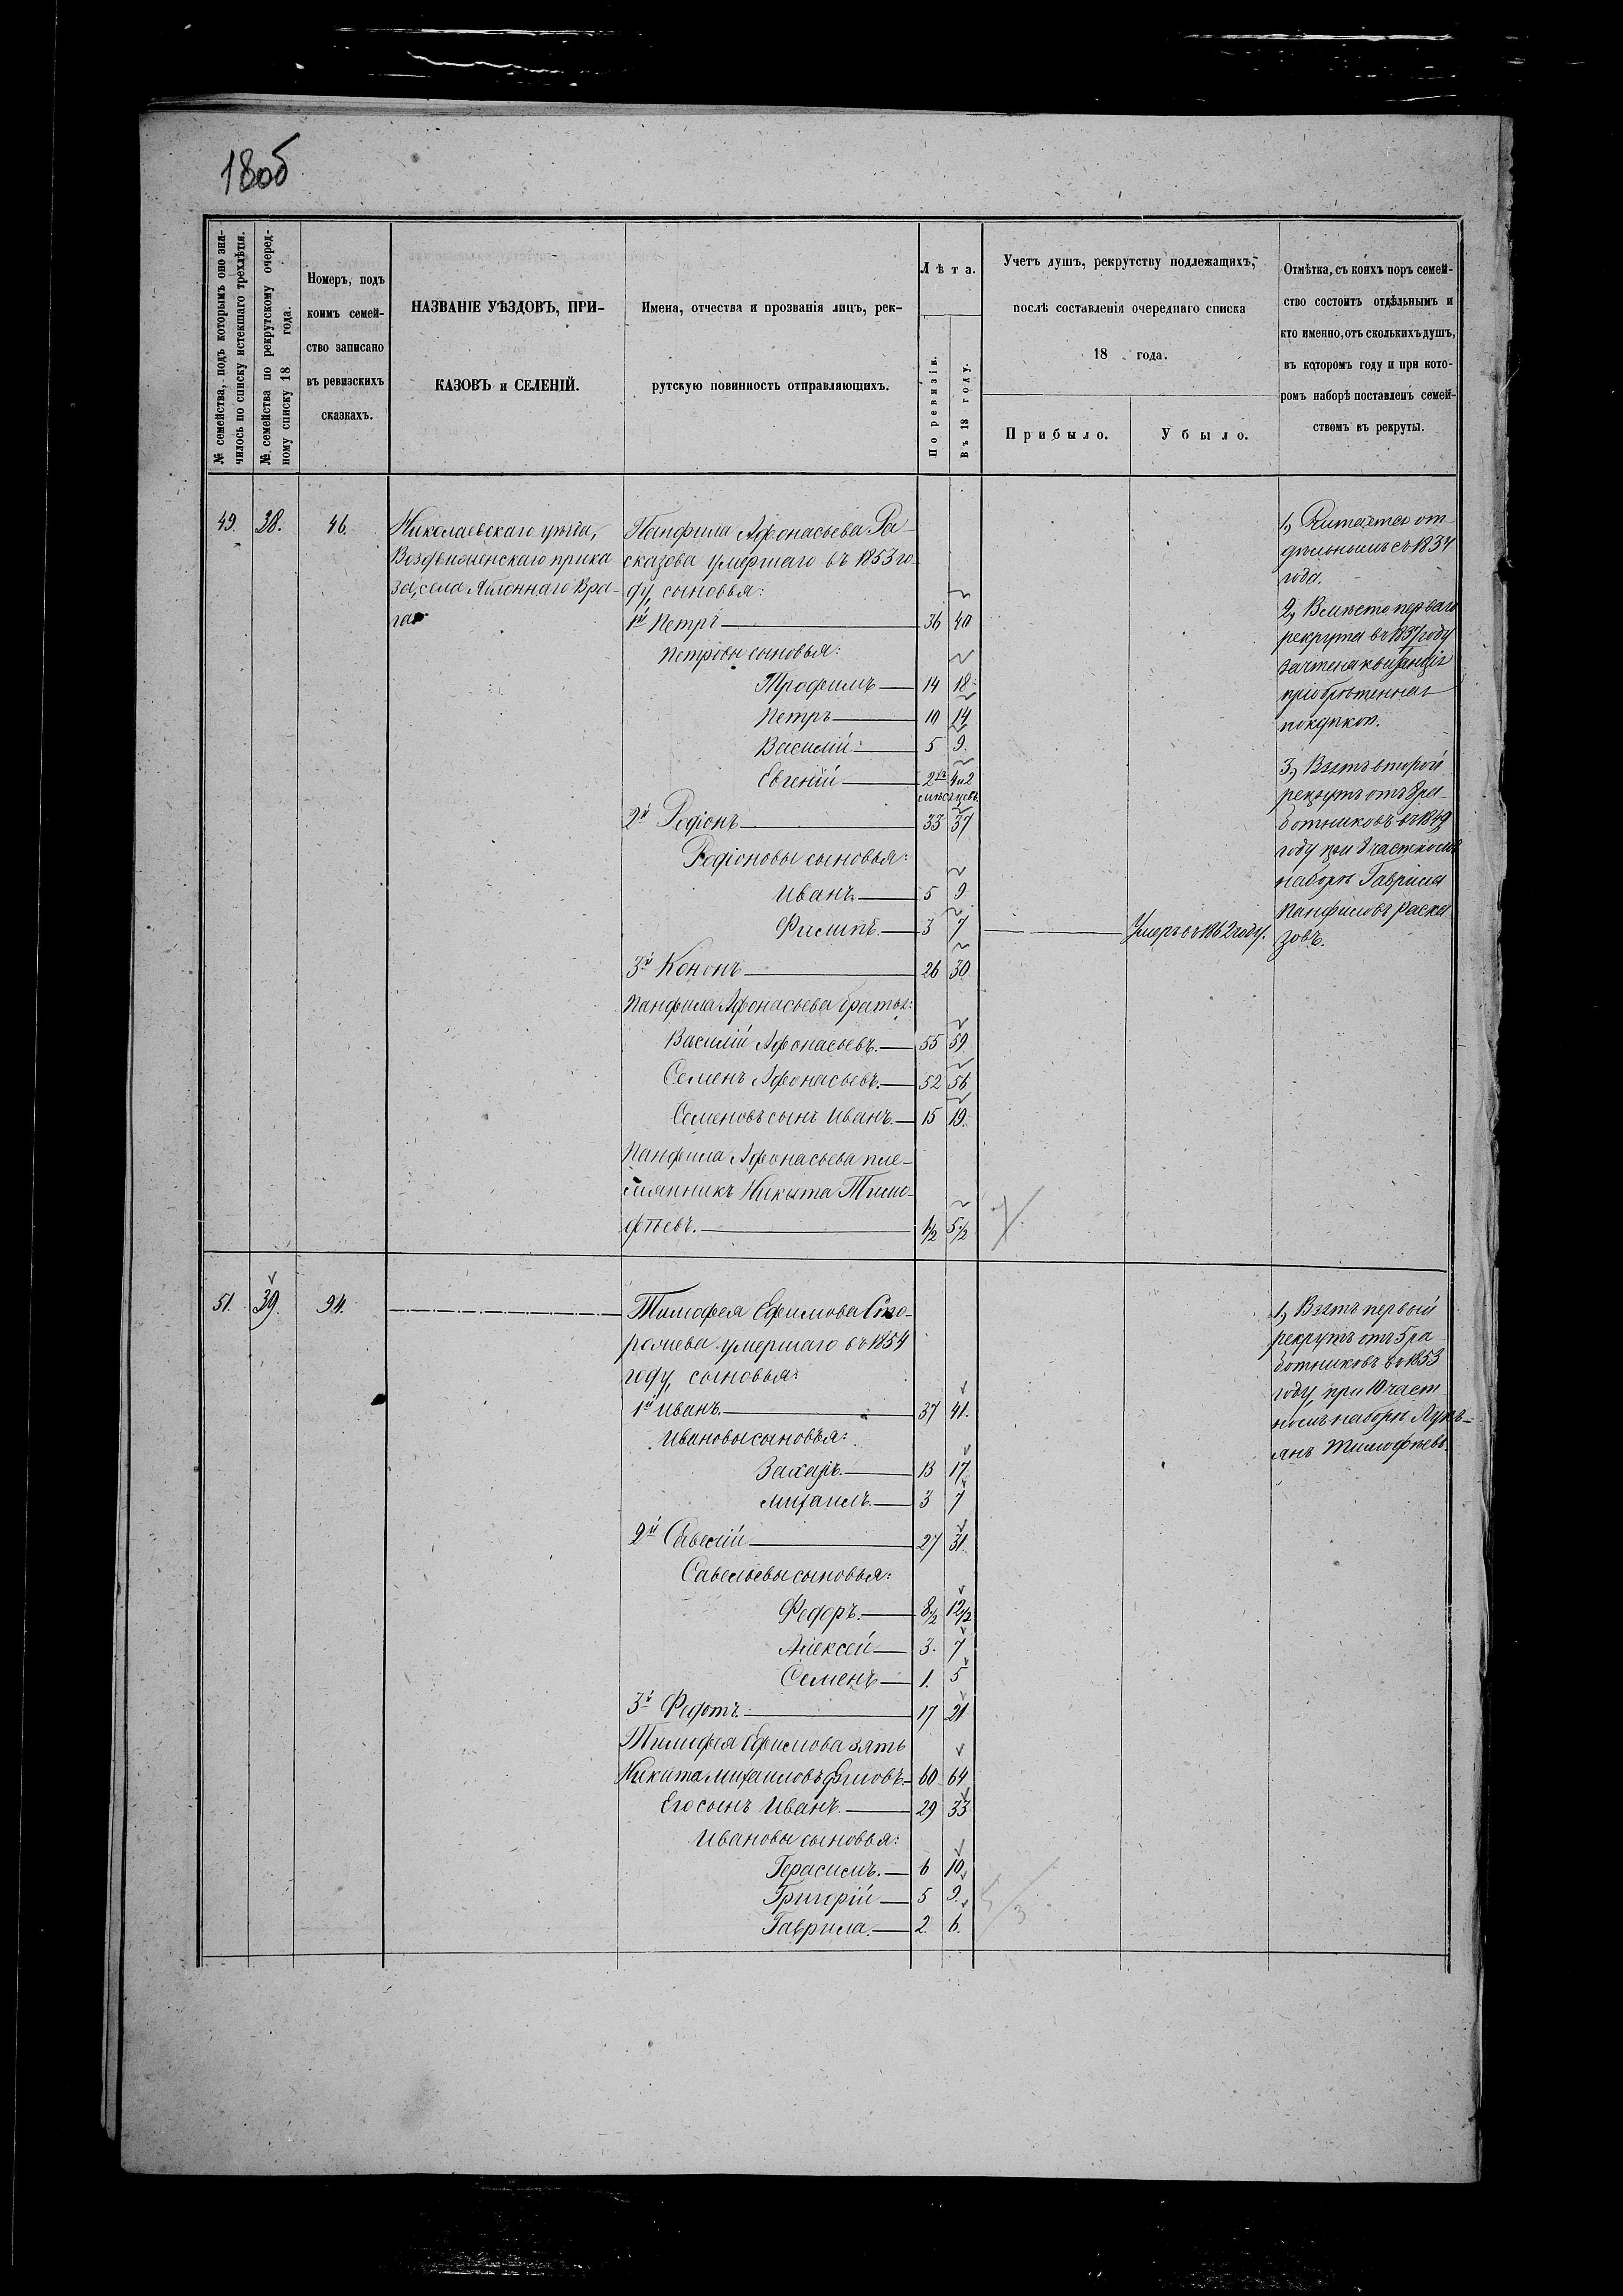 18об
№ семейства, подъ которымъ оно зна-
чилось по списку истекшаго трехлѣтія.
№ семейства по рекрутскому очеред-
ному списку 18 года.
Номеръ, подъ
коимъ семей-
ство записано
въ ревизскихъ
сказкахъ.
НАЗВАНІЕ УѢЗДОВЪ, ПРИ-
КАЗОВЪ и СЕЛЕНІЙ.
Имена, отчества и прозванія лицъ, рек-
рутскую повинность отправляющихъ.
Лѣта.
По ревизіи.
Въ 18 году.
Учетъ душъ, рекрутству подлежащихъ,
послѣ составленія очереднаго списка
18 года.
Прибыло.
Убыло.
Отмѣтка, съ коихъ поръ семей-
ство состоитъ отдѣльнымъ и
кто именно, отъ сколькихъ душъ,
въ которомъ году и при кото-
ромъ наборѣ поставленъ семей-
ствомъ въ рекруты.
49. 38. 46.
Николаевскаго уѣзда,
Воздвиженскаго прика
за, села Яблоннаго Вра-
га
Панфила Афонасьева Ра-
сказова умершаго въ 1853 го-
ду, сыновья:
1й Петръ 36 40
Петровы сыновья:
Трофимъ 14 18
Петръ 10 14
Василій 5 9.
Евгеній 2хъ 4 и 2
мѣсяцевъ
2й Родіонъ 33 37
Родіоновы сыновья:
Иванъ 5 9
Филипъ. 3 7 Умеръ въ 1862 году.
3й Кононъ 26 30
Панфила Афонасьева братья:
Василій Афонасьевъ. 55 59
Семенъ Афонасьевъ. 52 56
Семеновъ сынъ Иванъ. 15 19.
Панфила Афонасьева пле-
мянникъ Никита Тимо-
фѣевъ. 1½ 5½
1, Считается от-
дѣльнымъ съ 1834
года.
2, Вмѣсто перваго
рекрута въ 1837 году
зачтена квитанція
пріобрѣтенная
покупкой.
3, Взятъ второй
рекрутъ отъ 8 ра-
ботниковъ въ 1849
году при 8 частномъ
наборѣ Гаврила
Панфиловъ Раска
зовъ.
51. 39. 94.
Тимофея Ефимова Сто-
рожева умершаго въ 1854
году, сыновья:
1й Иванъ. 37 41.
Ивановы сыновья:
Захаръ. 13 17
Михаилъ. 3 7
2й Савелій 27 31.
Савельевы сыновья:
Федоръ. 8½ 12½
Алексей 3. 7
Семенъ 1. 5
3й Федотъ. 17 21
Тимофея Ефимова зять
Никита Михаиловъ 60 64
Его сынъ Иванъ. 29 33
Ивановы сыновья:
Герасимъ. 6 10
Григорій 5 9.
Гаврила. 2. 6.
1, Взятъ первый
рекрутъ отъ 5 ра
ботниковъ въ 1853
году, при 10 част
номъ наборѣ Лукъ-
янъ Тимофѣевъ.